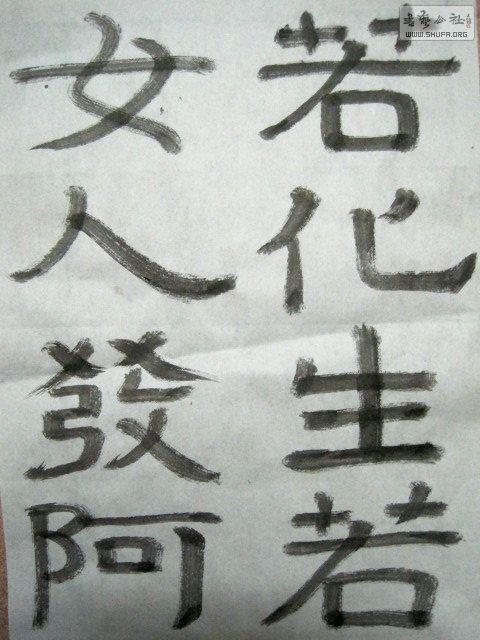 若化生若
女人發阿
書藝公社
WWW.SHUFA.ORG